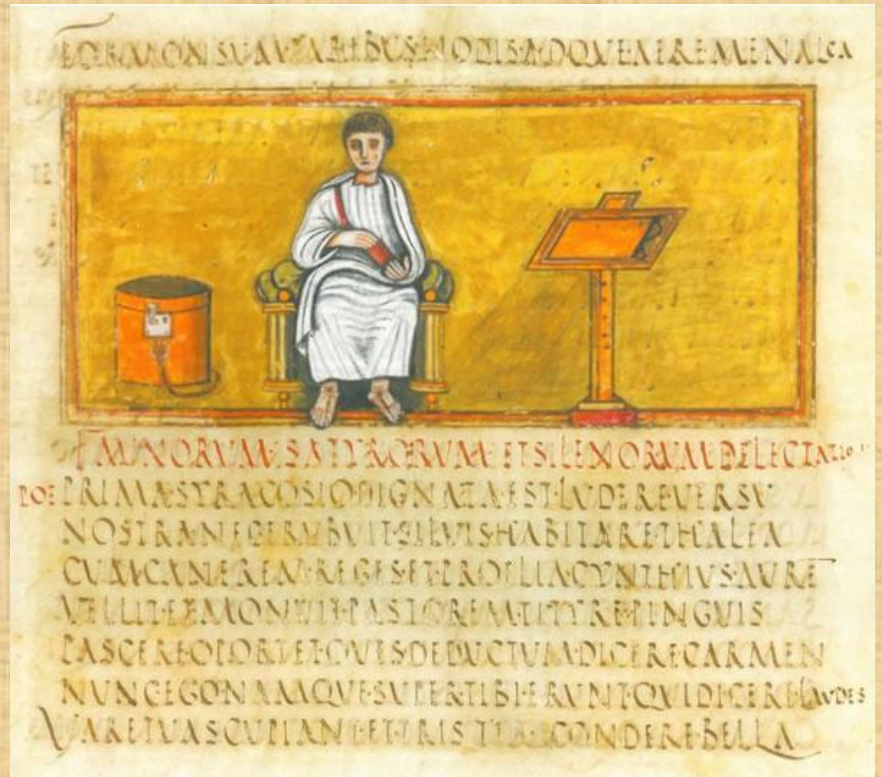 PARIBVS·NODIS·ADQVE·AERE·MENALCA
FAVNORVM·SATYRORVM·ET·SILENORVM·DELECTATIO
POE PRIMA·SYRACOSIO·DIGNATA·EST·LVDERE·VERSV
NOSTRA·NEC·ERVBVIT·SILVIS·HABITARE·THALEA
CVM·CANEREM·REGES·ET·PROELIA·CYNTHIVS·AVRE
VELLIT·ET·PASTOREM·TITYRE·PINGVIS
PASCERE·OPORTET·OVES·DEDVCTVM·DICERE·CARMEN
NVNC·EGO·NAMQVE·SVPER·TIBI·ERVNT·QVI·DICERE·LAVDES
VARE·TVAS·CVPIANT·ET·TRISTIA·CONDERE·BELLA